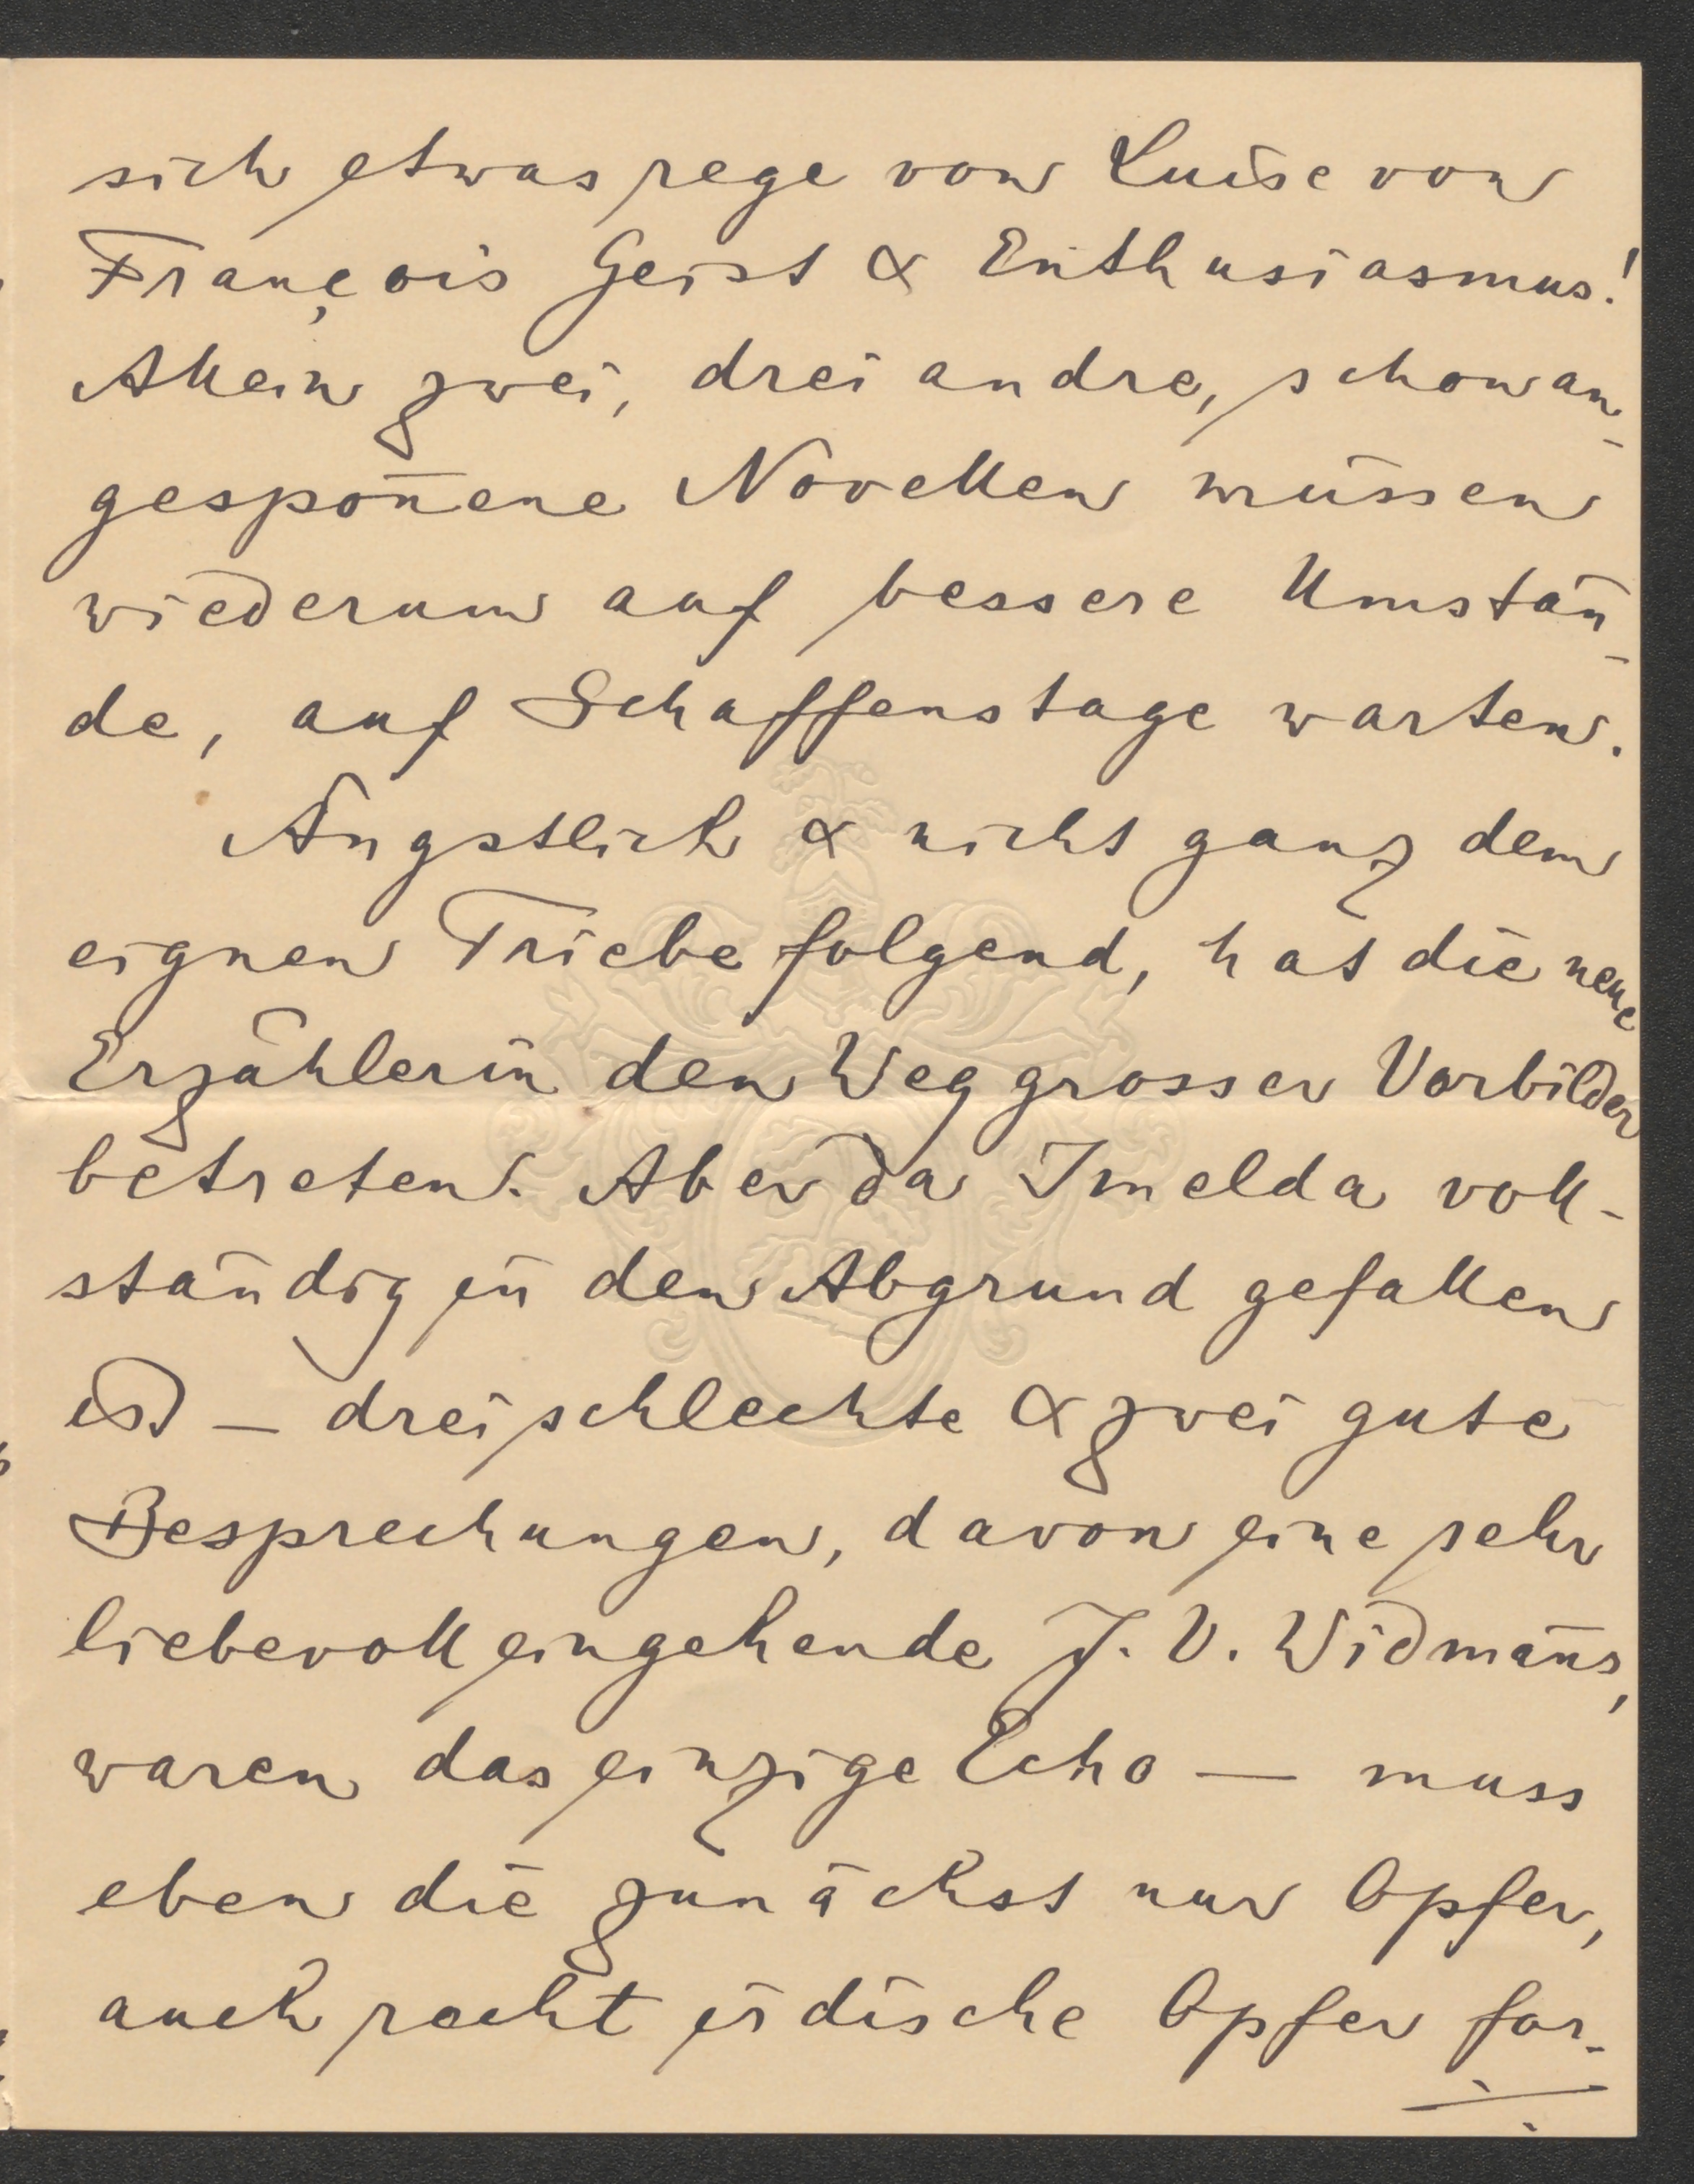 sich etwas rege von Luise von
François Geist & Enthusiasmus!
Allein zwei, drei andre, schon an-
gespon̄ene Novellen müssen
wiederum auf bessere Umstän-
de, auf Schaffenstage warten.
Ängstlich & nicht ganz dem
eignen Triebe folgend, hat die neue
Erzählerin den Weg grosser Vorbilder
betreten. Aber da Imelda voll-
ständig in den Abgrund gefallen
ist – drei schlechte & zwei gute
Besprechungen, davon eine sehr
liebevoll eingehende J. V. Widman̄s,
waren das einzige Echo – muss
eben die zunächst nur Opfer,
auch recht irdische Opfer for-